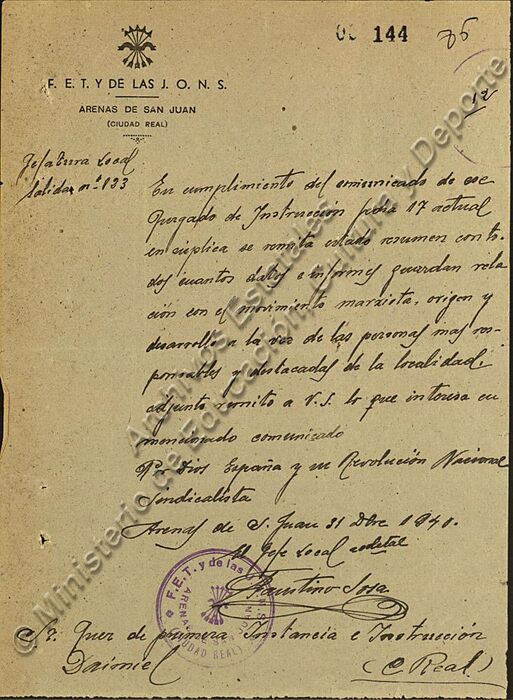 144
76
F. E. T. Y DE LAS J. O. N. S.
ARENAS DE SAN JUAN
(CIUDAD REAL)
12
Jefatura Local
Salida nº 133
En cumplimiento del comunicado de ese
Juzgado de Instrucción fecha 17 actual
en súplica se remita estado resumen con to-
dos cuantos datos e informes guardan rela
ción con el movimiento marxista, origen y
desarrollo a la vez de las personas mas res-
ponsables y destacadas de la localidad,
adjunto remito a V.S. lo que interesa en
mencionado comunicado
Por Dios España y su Revolución Nacional
Sindicalista
Arenas de S. Juan 31 Dbre 1940.
El Jefe Local
Faustino Sosa
F.E.T. y de las J.O.N.S.
ARENAS DE SAN JUAN
(CIUDAD REAL)
Sr. Juez de primera Instancia e Instrucción
Daimiel (C. Real)
© Ministerio de Educación, Cultura y Deporte
Archivos Estatales